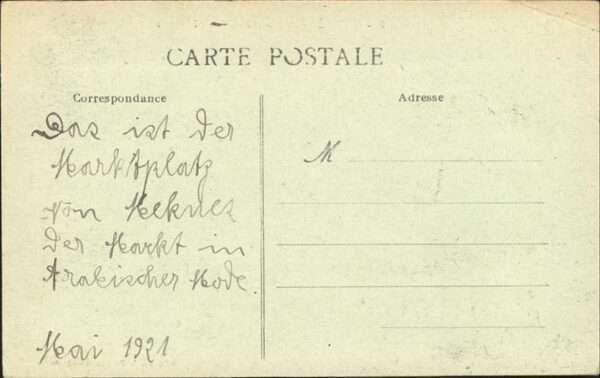 CARTE POSTALE
Correspondance
Adresse
Das ist der
Marktplatz
von Meknes
der Markt in
Arabischer Mode
Mai 1921
M